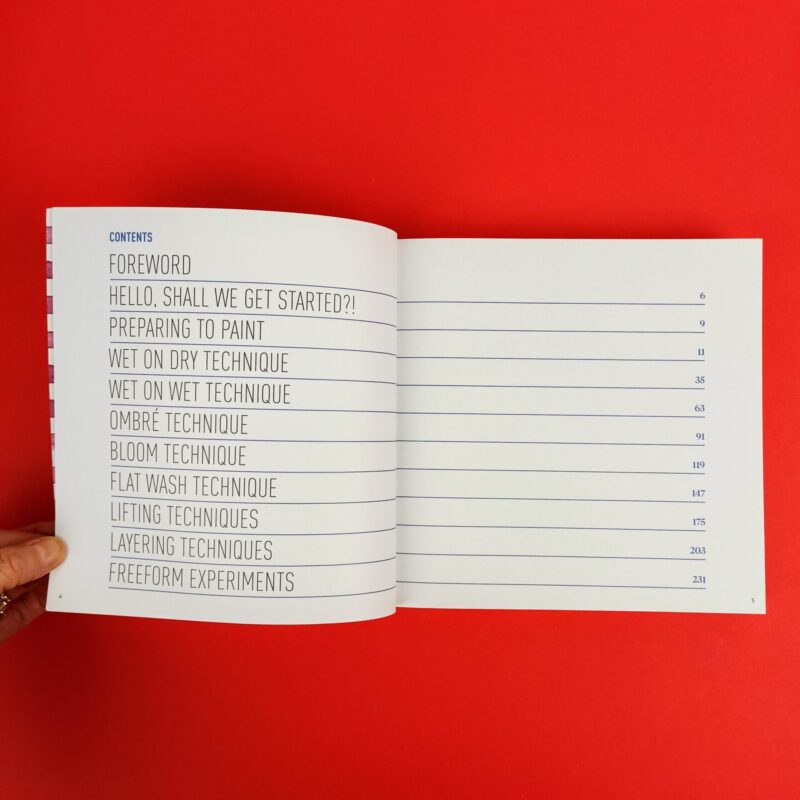 CONTENTS
FOREWORD 6
HELLO, SHALL WE GET STARTED?! 9
PREPARING TO PAINT 11
WET ON DRY TECHNIQUE 35
WET ON WET TECHNIQUE 63
OMBRÉ TECHNIQUE 91
BLOOM TECHNIQUE 119
FLAT WASH TECHNIQUE 147
LIFTING TECHNIQUES 175
LAYERING TECHNIQUES 203
FREEFORM EXPERIMENTS 231
4
5